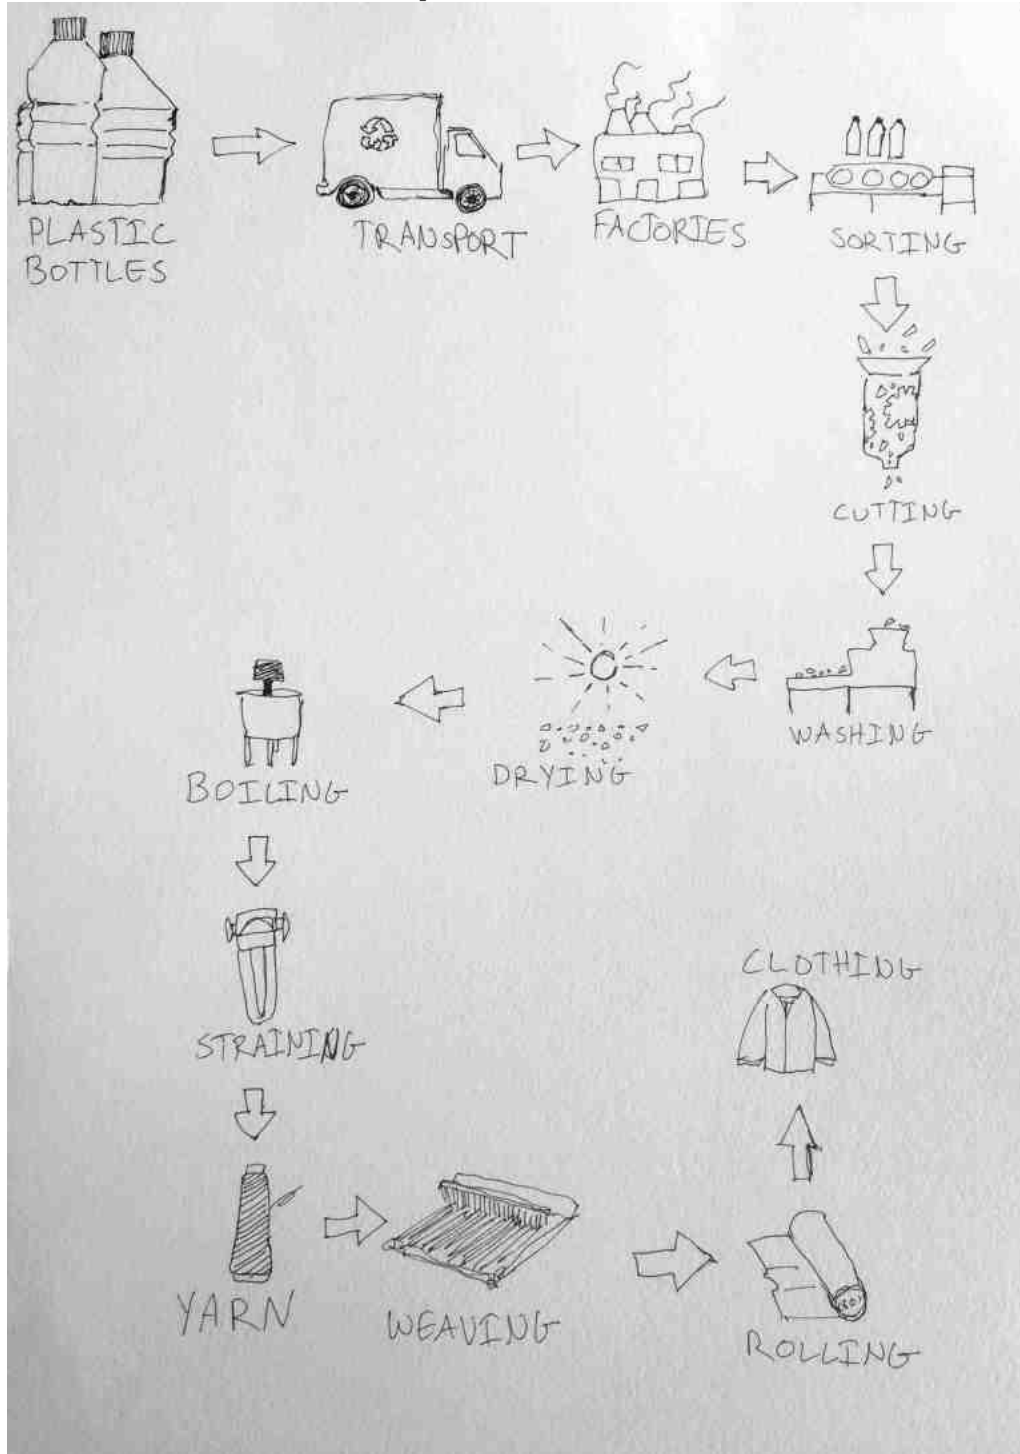 PLASTIC
BOTTLES
TRANSPORT
FACTORIES
SORTING
CUTTING
WASHING
DRYING
BOILING
STRAINING
YARN
WEAVING
ROLLING
CLOTHING